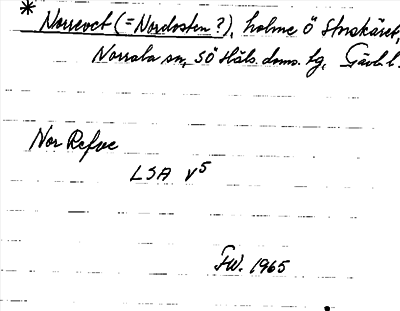 * Norrevet (= Nordosten ?), holme Ö Storskäret,
Norrala sn, SÖ Häls. doms. fg, Gävl. l.
Nor Refve
LSA V5
FW. 1965